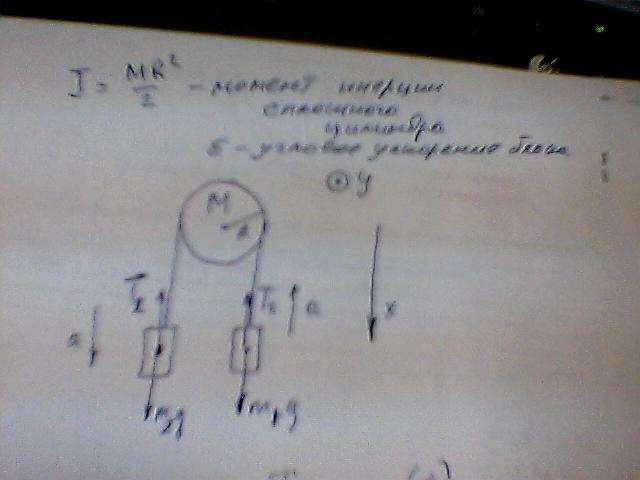 J = MR²/2 - момент инерции
сплошного
цилиндра
ε - угловое ускорение блока
⊙ y
M
R
T₂ T₁ a x
a
m₂g m₁g